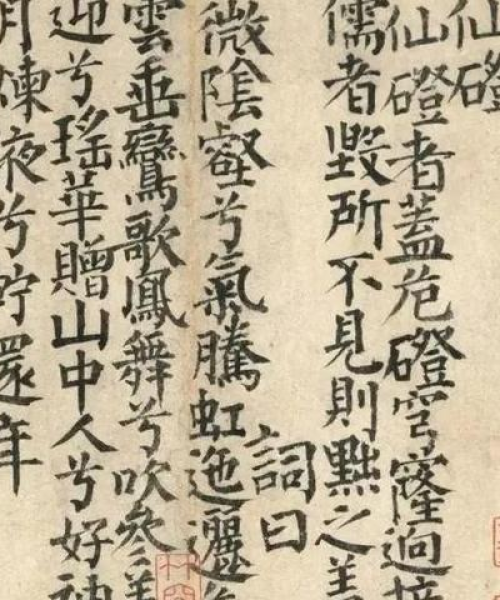 仙磴
仙磴者蓋危磴穹窿迥接
儒者毀所不見則黜之
詞曰
微陰壑兮氣騰虹迤邐
雲垂鸞歌鳳舞兮吹參差
迎兮瑤華贈山中人兮好神
月煉液兮佇還年